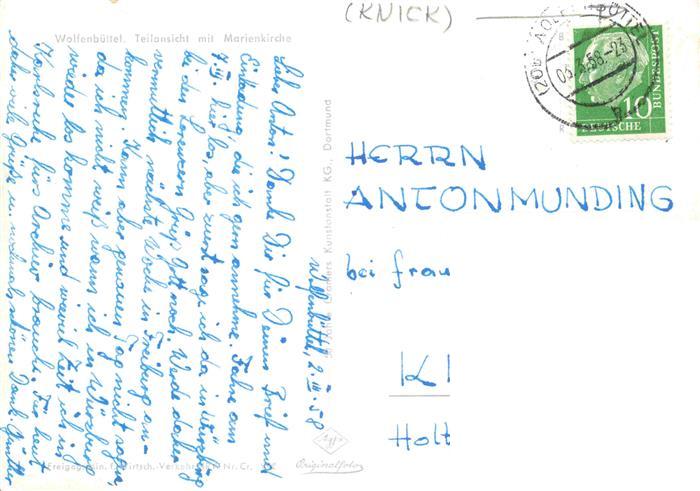 (KNICK)
Wolfenbüttel. Teilansicht mit Marienkirche
WOLFENBÜTTEL
03.3.58.-23
10
DEUTSCHE BUNDESPOST
HERRN
ANTON MUNDING
bei Frau
KI
Holt
Wolfenbüttel, 2. III. 58
Lieber Anton! Danke Dir für Deinen Brief und
Einladung, die ich gern annehme. Fahre am
7. III. hier los, aber zuerst sage ich da in Würzburg
bei den Grüß Gott noch. Werde daher
vermutlich nächste Woche in Freiburg an-
kommen. Kann aber genauen Tag nicht sagen,
da ich nicht weiß wann ich in Würzburg
wieder los komme und wieviel Zeit ich in
Karlsruhe fürs Archiv brauche. Für heut
daher viele Grüße u. nochmals schönen Dank Günther
Kunstanstalt KG., Dortmund
Agfa
Originalfoto
Freigegeb. Wirtsch.- Verkehr Nr. Cr.